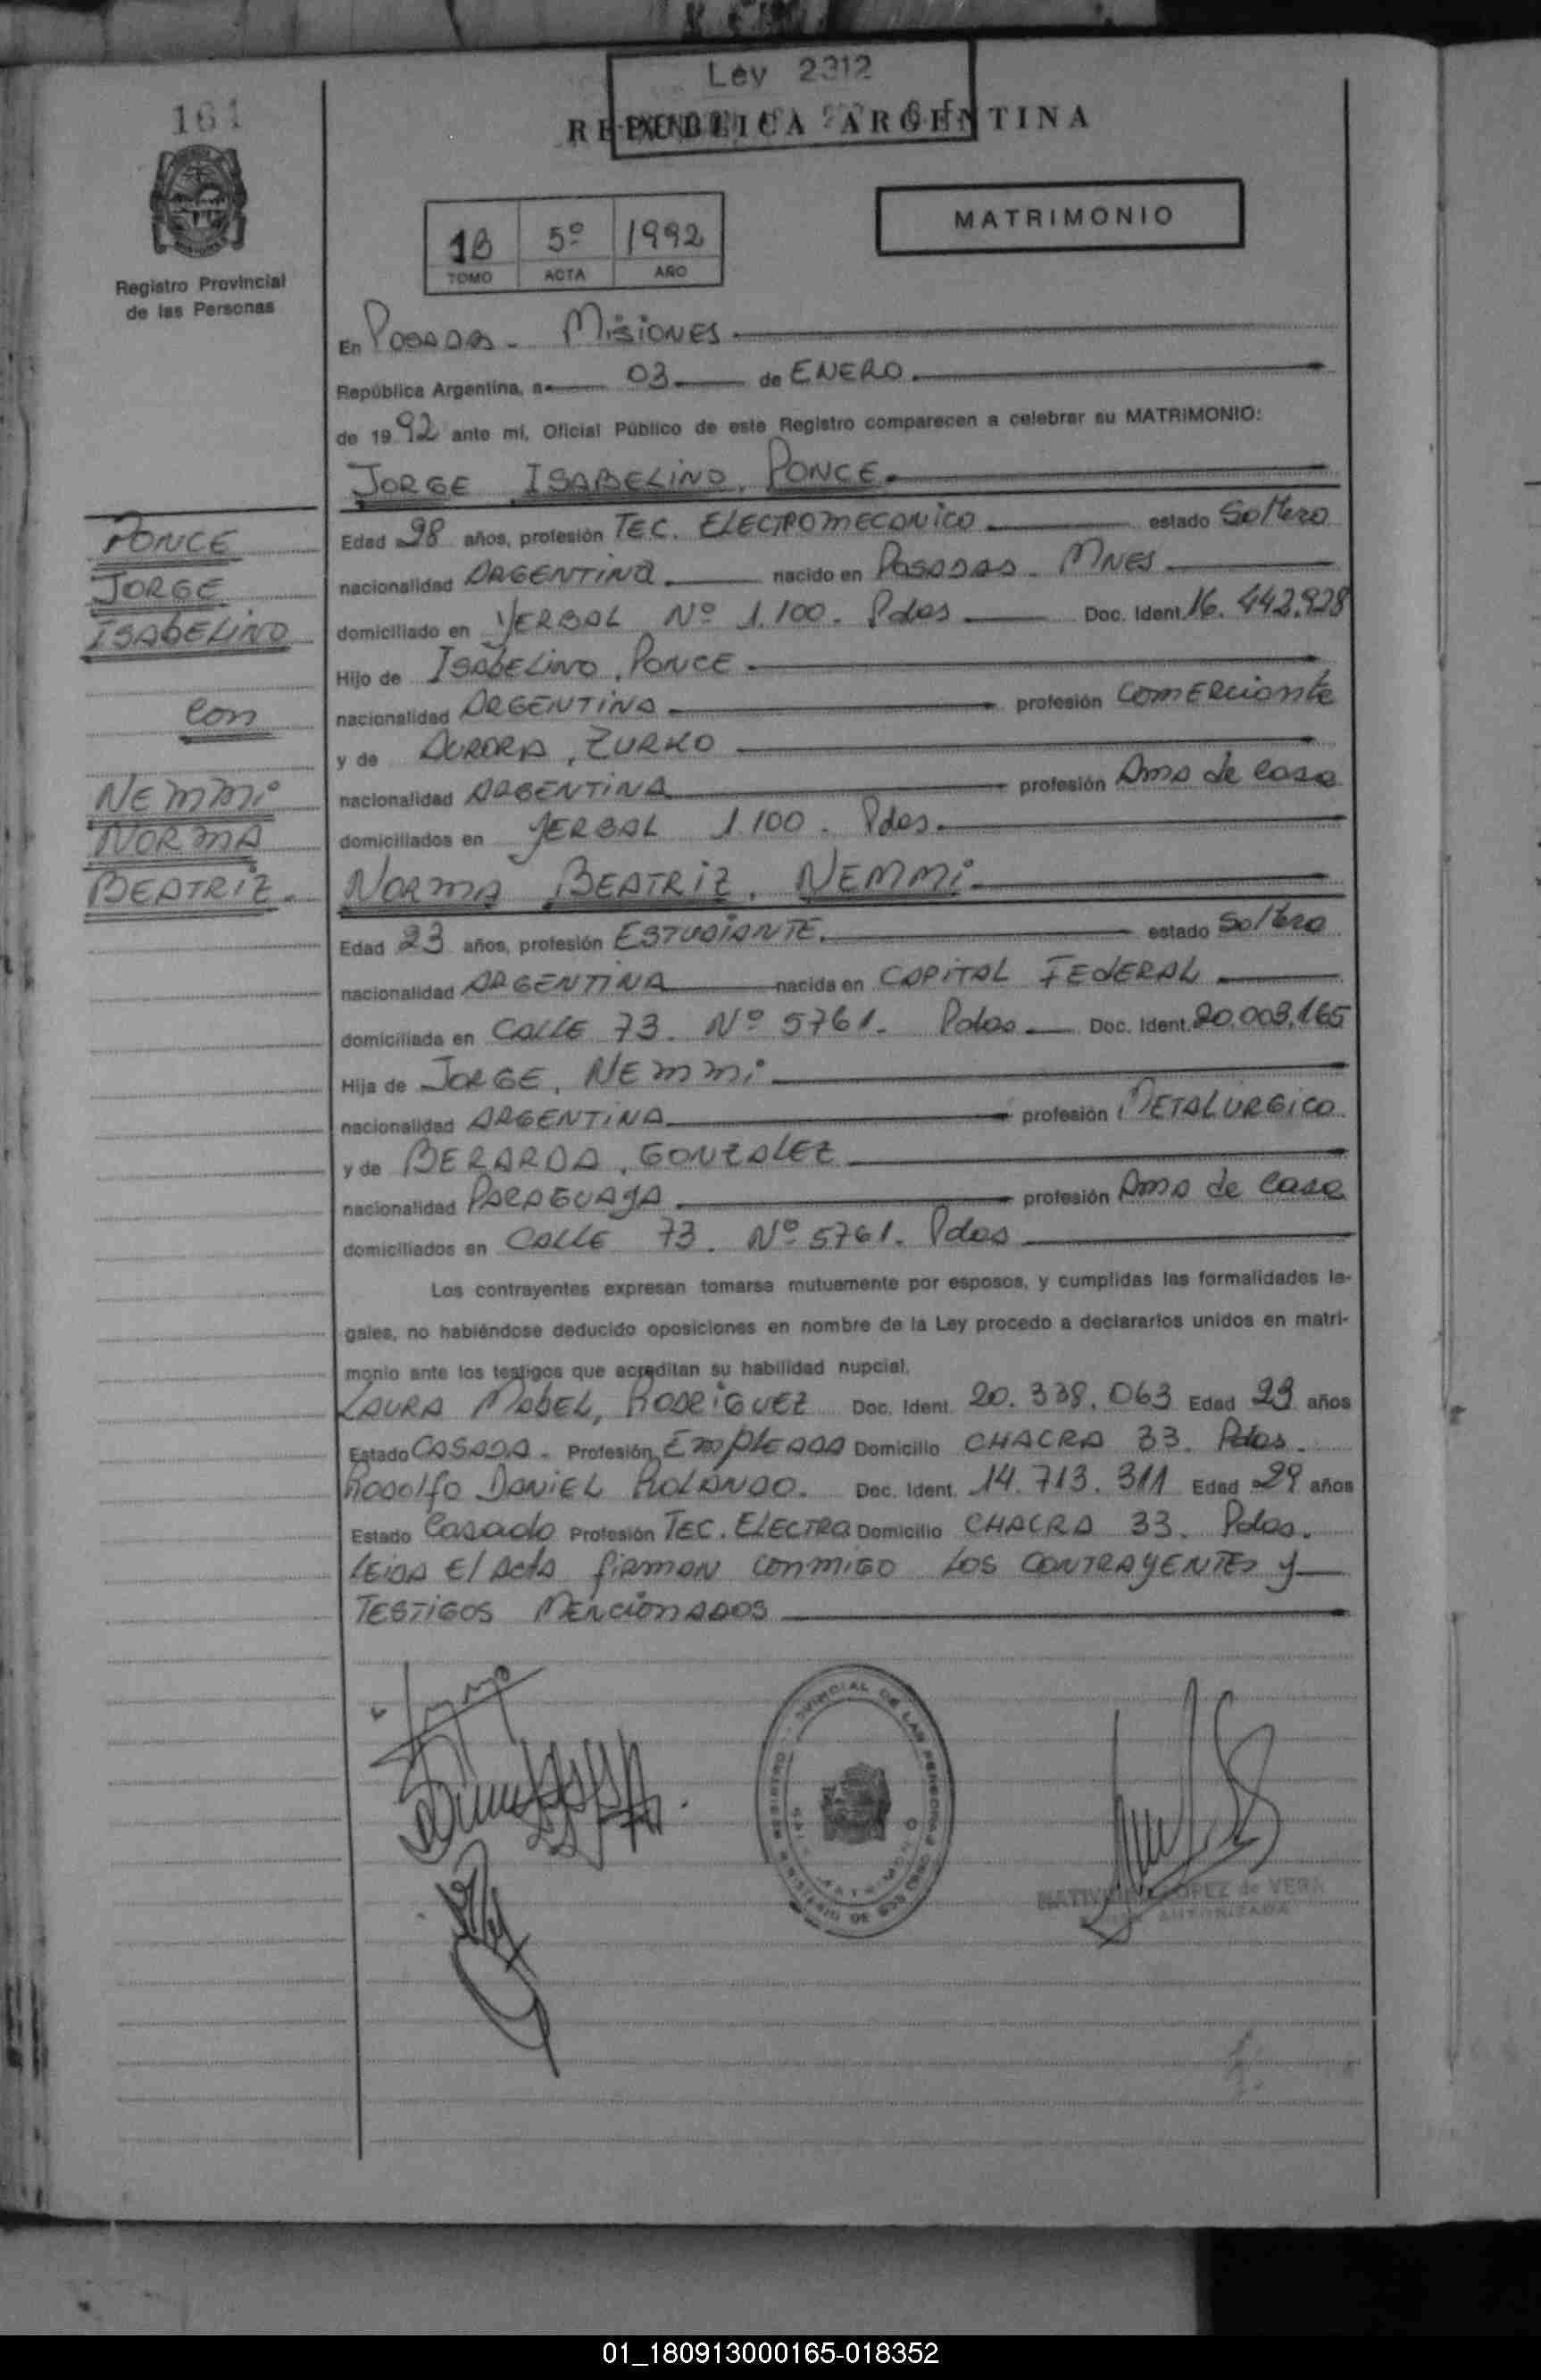 Ley 2312
161
REPUBLICA ARGENTINA
MATRIMONIO
1B 5º 1992
TOMO ACTA AÑO
Registro Provincial
de las Personas
En Posadas - Misiones
República Argentina, a 03 de ENERO
de 1992 ante mí, Oficial Público de este Registro comparecen a celebrar su MATRIMONIO:
JORGE ISABELINO, PONCE
PONCE
JORGE
ISABELINO
con
NEMMI
NORMA
BEATRIZ.
Edad 28 años, profesión TEC. ELECTROMECANICO estado Soltero
nacionalidad ARGENTINA nacido en POSADAS - MNES
domiciliado en YERBAL Nº 1.100. Pdas Doc. Ident. 16.442.928
Hijo de ISABELINO, PONCE
nacionalidad ARGENTINA profesión COMERCIANTE
y de AURORA, ZURKO
nacionalidad ARGENTINA profesión Ama de casa
domiciliados en YERBAL 1.100. Pdas.
NORMA BEATRIZ, NEMMI
Edad 23 años, profesión ESTUDIANTE. estado Soltera
nacionalidad ARGENTINA nacida en CAPITAL FEDERAL
domiciliada en CALLE 73. Nº 5761. Pdas Doc. Ident. 20.003.165
Hija de JORGE, NEMMI
nacionalidad ARGENTINA profesión METALURGICO
y de BERARDA, GONZALEZ
nacionalidad PARAGUAYA profesión Ama de casa
domiciliados en CALLE 73. Nº 5761. Pdas
Los contrayentes expresan tomarse mutuamente por esposos, y cumplidas las formalidades le-
gales, no habiéndose deducido oposiciones en nombre de la Ley procedo a declararlos unidos en matri-
monio ante los testigos que acreditan su habilidad nupcial.
LAURA MABEL, RODRIGUEZ Doc. Ident. 20.338.063 Edad 23 años
Estado CASADA. Profesión EMPLEADA Domicilio CHACRA 33. Pdas.
RODOLFO DANIEL ROLANDO. Doc. Ident. 14.713.311 Edad 29 años
Estado Casado Profesión TEC. ELECTRO Domicilio CHACRA 33. Pdas.
LEIDA El Acta firman conmigo LOS CONTRAYENTES y
TESTIGOS MENCIONADOS
LOPEZ de VERA
AUTORIZADA
01_180913000165-018352